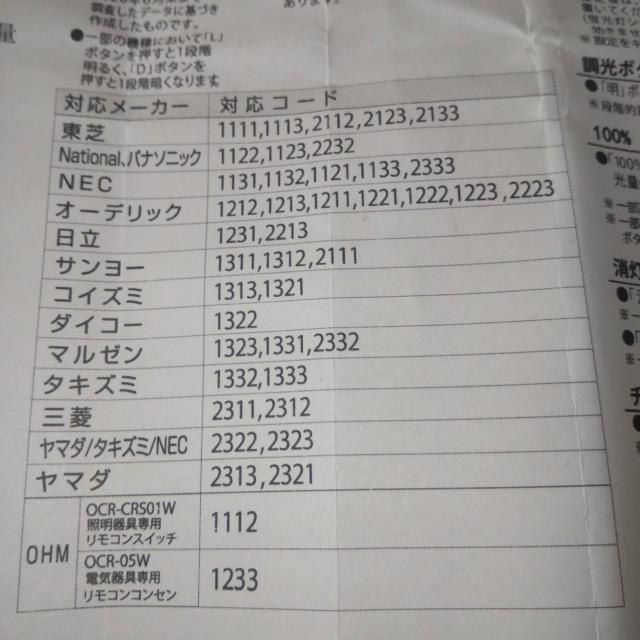 量
調査したデータに基づき
作成したものです。
●一部の機種において「L」
ボタンを押すと1段階
明るく、「D」ボタンを
押すと1段階暗くなります
あります。
対応メーカー 対応コード
東芝 1111,1113,2112,2123,2133
National、パナソニック 1122,1123,2232
NEC 1131,1132,1121,1133,2333
オーデリック 1212,1213,1211,1221,1222,1223,2223
日立 1231,2213
サンヨー 1311,1312,2111
コイズミ 1313,1321
ダイコー 1322
マルゼン 1323,1331,2332
タキズミ 1332,1333
三菱 2311,2312
ヤマダ/タキズミ/NEC 2322,2323
ヤマダ 2313,2321
OHM
OCR-CRS01W
照明器具専用
リモコンスイッチ
1112
OCR-05W
電気器具専用
リモコンコンセン
1233
※設定を
調光ボ
●「明」ボ
※段階的
100%
●「100%
光量
※一部
※一部
ボタ
消灯